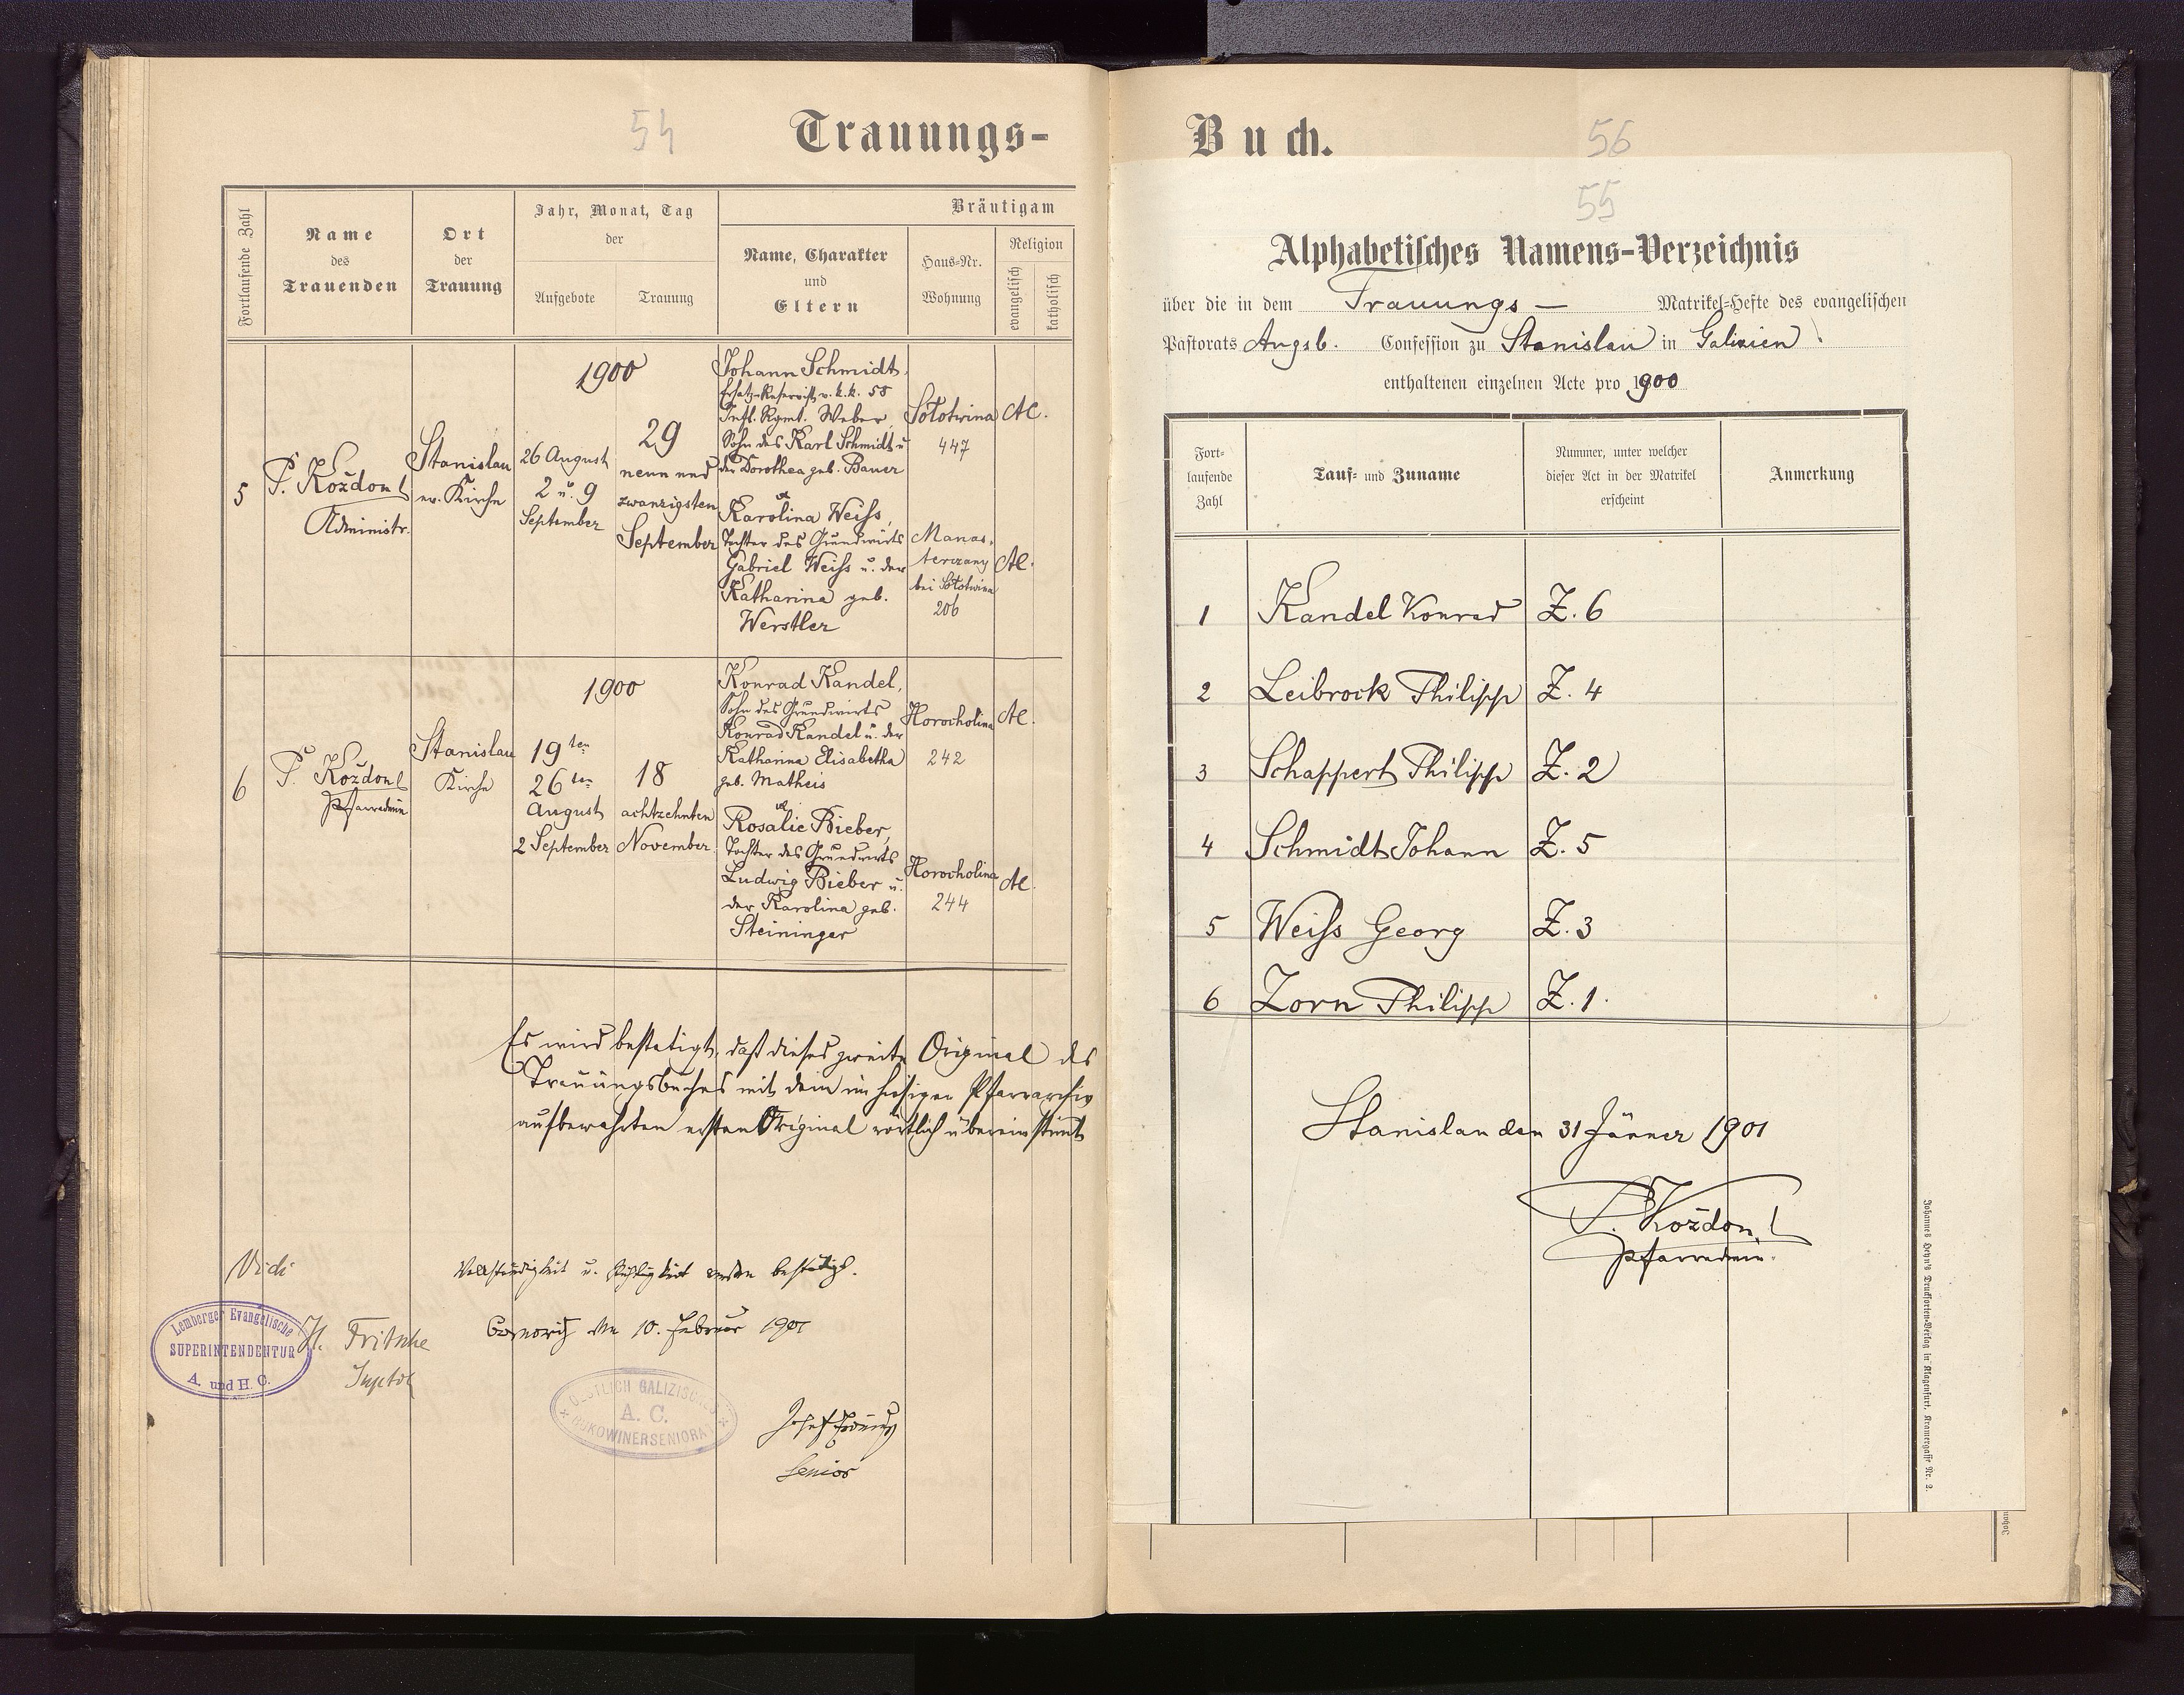 54
Trauungs-
Fortlaufende Zahl
Name
des
Trauenden
Ort
der
Trauung
Jahr, Monat, Tag
der
Aufgebote
Trauung
Bräutigam
Name, Charakter
und
Eltern
Haus-Nr.
Wohnung
Religion
evangelisch
katholisch
5
P. Koždoń
Administr.
Stanislau
ev. Kirche
1900
26 August
2 u. 9
September
29
neun und
zwanzigsten
September
Johann Schmidt,
Ersatz-Reservist v. k.k. 58
Inft. Rgmt. Weber,
Sohn des Karl Schmidt u
der Dorothea geb. Bauer
Sołotwina
447
AC.
Karolina Weiss,
Tochter des Grundwirts
Gabriel Weiss u. der
Katharina geb.
Werstler
Manas-
terczany
bei Sołotwina
206
AC.
6
P. Koždoń
Pfarradmin
Stanislau
Kirche
1900
19ten
26ten
August
2 September
18
achtzehnten
November
Konrad Kandel,
Sohn des Grundwirts
Konrad Kandel u. der
Katharina Elisabetha
geb. Matheis
Horocholina
242
AC.
Rosalie Bieber,
Tochter des Grundwirts
Ludwig Bieber u.
der Karolina geb.
Steininger
Horocholina
244
AC.
Es wird bestätigt, daß dieses zweite Original des
Trauungsbuches mit dem im hiesigen Pfarrarchiv
aufbewahrten ersten Original wörtlich übereinstimmt
Vidi
Vollständigkeit u. Richtigkeit werden bestätigt.
den 10. Februar 1901
Lemberger Evangelische
SUPERINTENDENTUR
A. und H. C.
H. Fritsche
Suptdt
OESTLICH GALIZISCHES
A. C.
BUKOWINERSENIORAT
Josef
Senior
Buch.
56
55
Alphabetisches Namens-Verzeichnis
über die in dem Trauungs- Matrikel-Hefte des evangelischen
Pastorats Augsb. Confession zu Stanislau in Galizien
enthaltenen einzelnen Acte pro 1900
Fort-
laufende
Zahl
Tauf- und Zuname
Nummer, unter welcher
dieser Act in der Matrikel
erscheint
Anmerkung
1 Kandel Konrad Z. 6
2 Leibrock Philipp Z. 4
3 Schappert Philipp Z. 2
4 Schmidt Johann Z. 5
5 Weiss Georg Z. 3
6 Zorn Philipp Z. 1.
Stanislau den 31 Jänner 1901
P. Koždoń
Pfarradmin.
Johannes Heyn's Drucksorten-Verlag in Klagenfurt, Kramergasse Nr. 2.
Johan